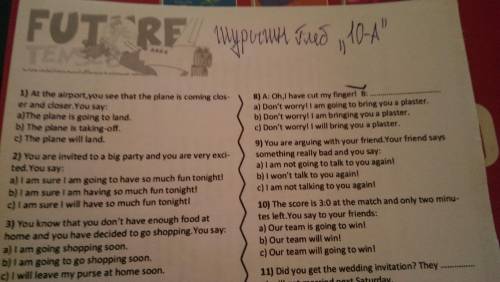 FUTURE
TENSE
Шурыгин Глеб „10-А"
1) At the airport,you see that the plane is coming clos-
er and closer.You say:
a)The plane is going to land.
b) The plane is taking-off.
c) The plane will land.
2) You are invited to a big party and you are very exci-
ted.You say:
a) I am sure I am going to have so much fun tonight!
b) I am sure I am having so much fun tonight!
c) I am sure I will have so much fun tonight!
3) You know that you don't have enough food at
home and you have decided to go shopping.You say:
a) I am going shopping soon.
b) I am going to go shopping soon.
c) I will leave my purse at home soon.
8) A: Oh,I have cut my finger! B: ........................
a) Don't worry! I am going to bring you a plaster.
b) Don't worry! I am bringing you a plaster.
c) Don't worry! I will bring you a plaster.
9) You are arguing with your friend.Your friend says
something really bad and you say:
a) I am not going to talk to you again!
b) I won't talk to you again!
c) I am not talking to you again!
10) The score is 3:0 at the match and only two minu-
tes left.You say to your friends:
a) Our team is going to win!
b) Our team will win!
c) Our team will going to win!
11) Did you get the wedding invitation? They ............
married next Saturday.